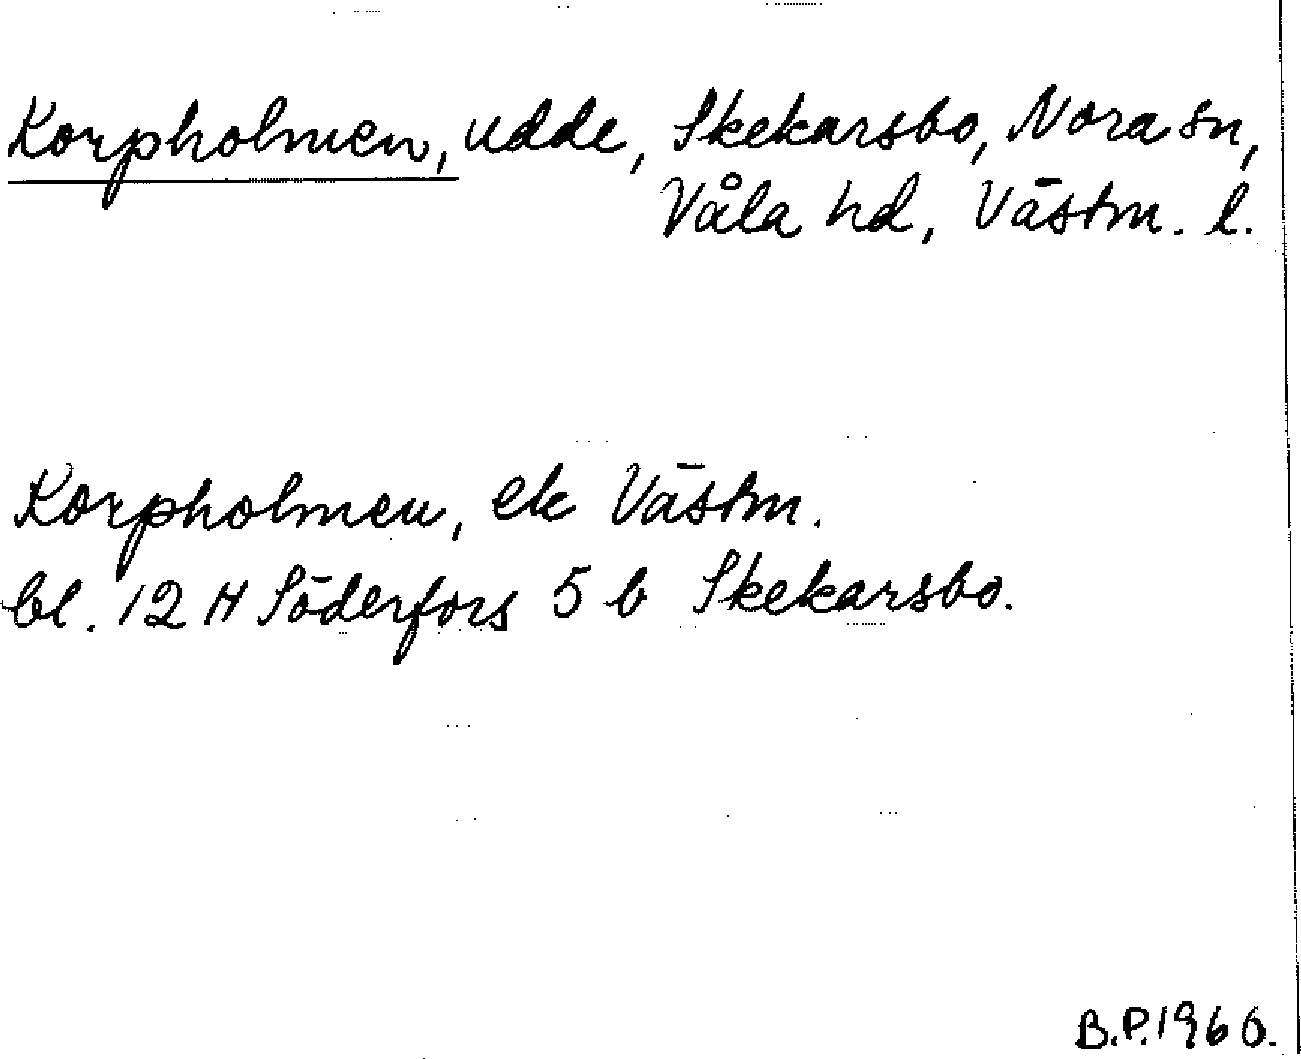 Korpholmen, udde, Skekarsbo, Nora sn,
Våla hd, Västm. l.
Korpholmen, ek Västm.
bl. 12 H Söderfors 5 b Skekarsbo.
B.P. 1960.